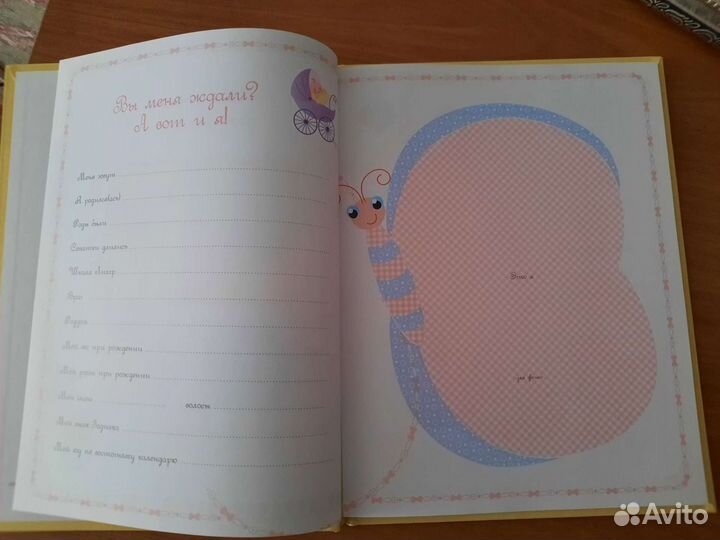 Вы меня ждали?
А вот и я!
Меня зовут
Я родился(ась)
Роды были
Схватки длились
Шкала Апгар
Врач
Роддом
Мой вес при рождении
Мой рост при рождении
Мои глаза волосы
Мой знак Зодиака
Мой год по восточному календарю
Это я
Avito